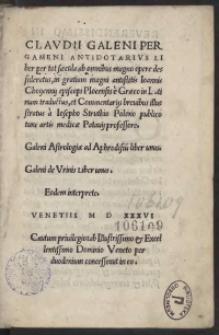 CLAVDII GALENI PER
GAMENI ANTIDOTARIVS LI
ber per tot sæcula ab omnibus magno opere des
sideratus, in gratiam magni antistitis Ioannis
Choyenij episcopi Plocensis è Græco in Lati
num traductus, et Commentarijs breuibus illus
stratus à Iosepho Struthio Polono publico
tunc artis medicæ Patauij professore.
Galeni Astrologia ad Aphrodisiũ liber unus.
Galeni de Vrinis Liber unus.
Eodem interprete.
VENETIIS M D XXXVI
106109
Cautum priuilegio ab Illustrissimo & Excel
lentissimo Dominio Veneto per
duodenium concesserunt in eo.